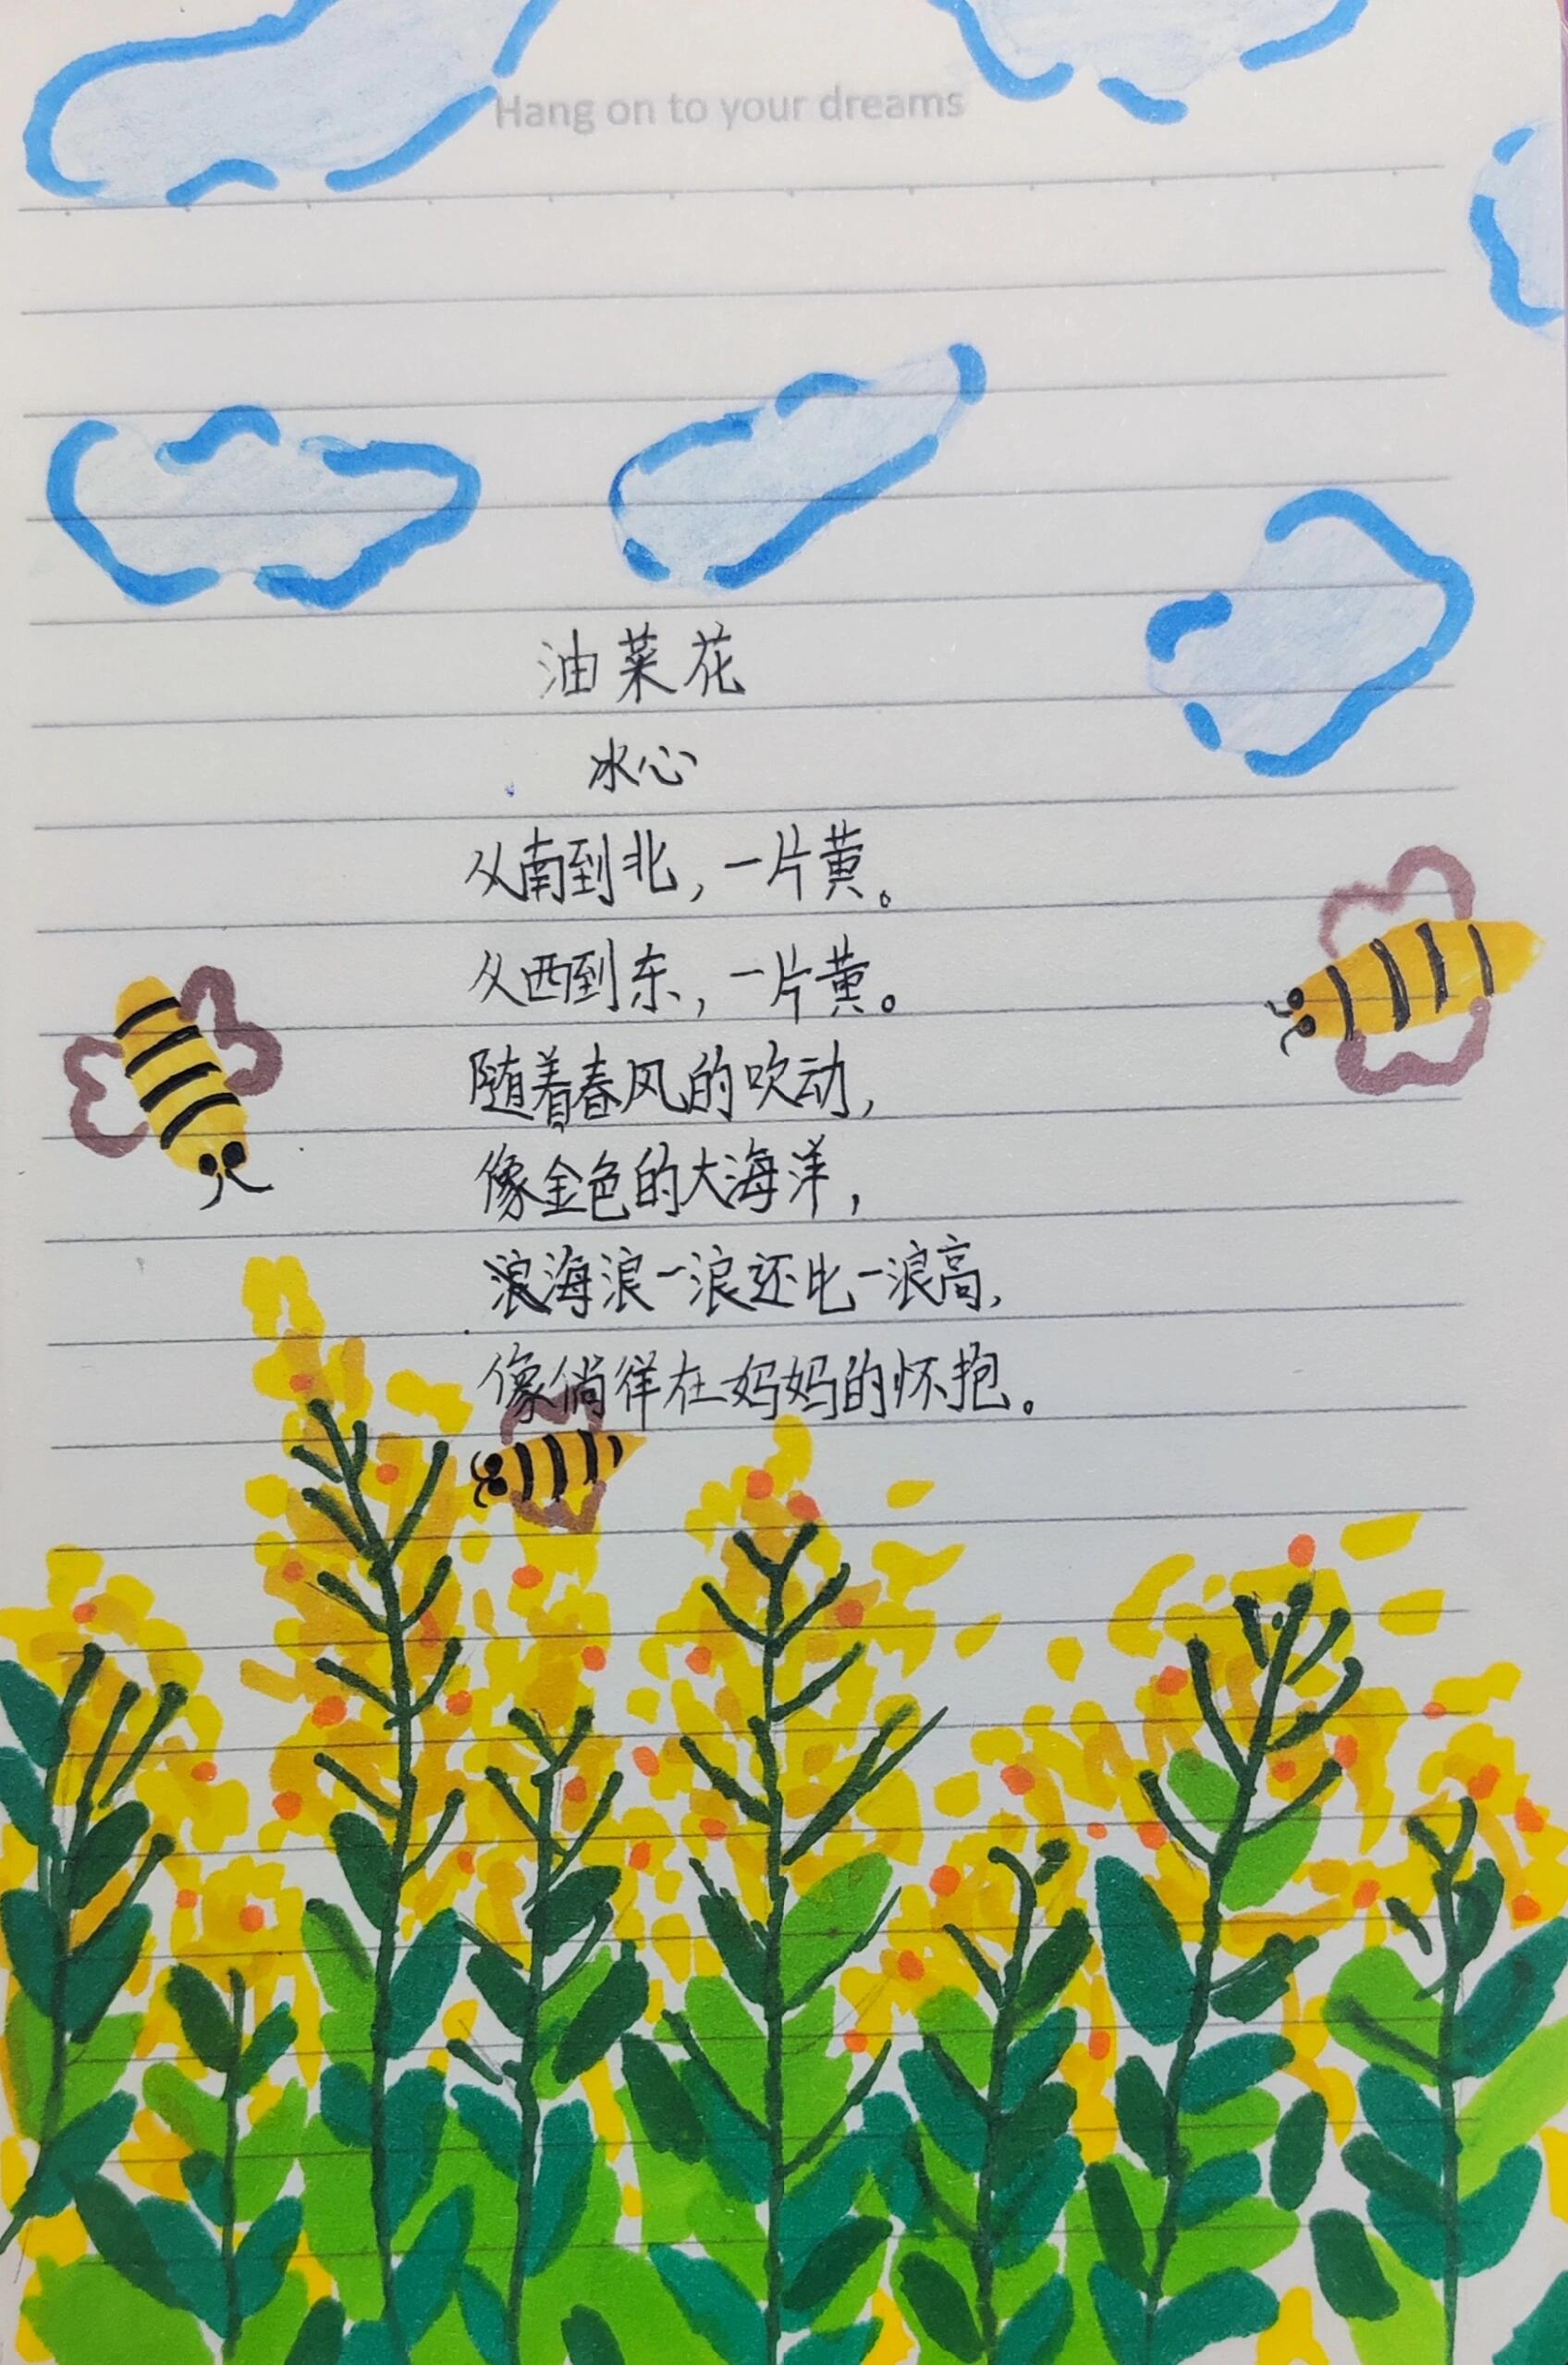 Hang on to your dreams
油菜花
冰心
从南到北，一片黄。
从西到东，一片黄。
随着春风的吹动，
像金色的大海洋，
海浪一浪还比一浪高，
像倘徉在妈妈的怀抱。